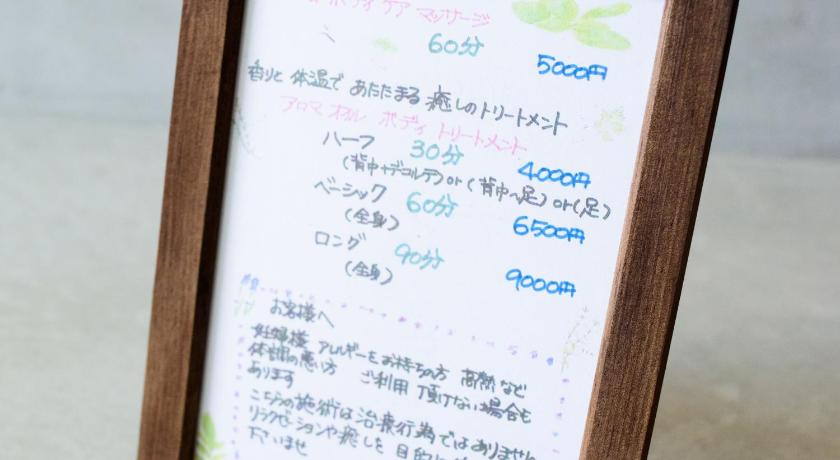 ボディケア マッサージ
60分
5000円
香りと体温で あたたまる 癒しのトリートメント
アロマオイル ボディ トリートメント
ハーフ 30分
4000円
(背中+デコルテ) or (背中〜足) or (足)
ベーシック 60分
(全身)
6500円
ロング 90分
(全身)
9000円
お客様へ
妊婦様 アレルギーをお持ちの方 高熱など
体調の悪い方 ご利用 頂けない場合も
あります
こちらの施術は治療行為ではありません
リラクゼーションや癒しを 目的に
下さいませ